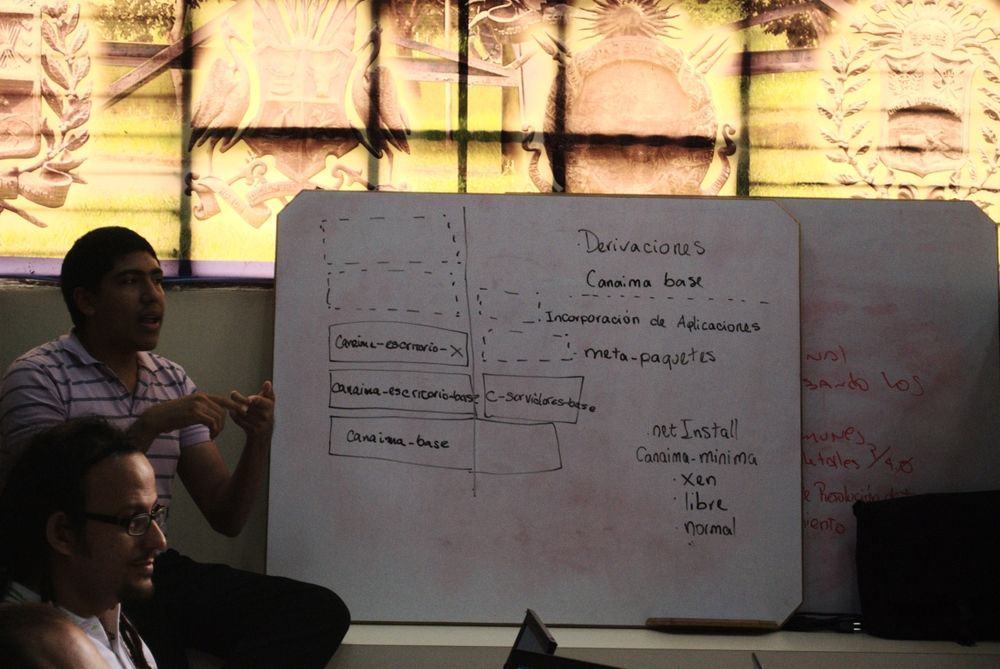 Canaima-escritorio-X
Canaima-escritorio-base
C-servidores-base
Canaima-base
.Derivaciones
Canaima base
.Incorporación de Aplicaciones
.meta-paquetes
.netInstall
Canaima-minima
.xen
.libre
.normal
LOS